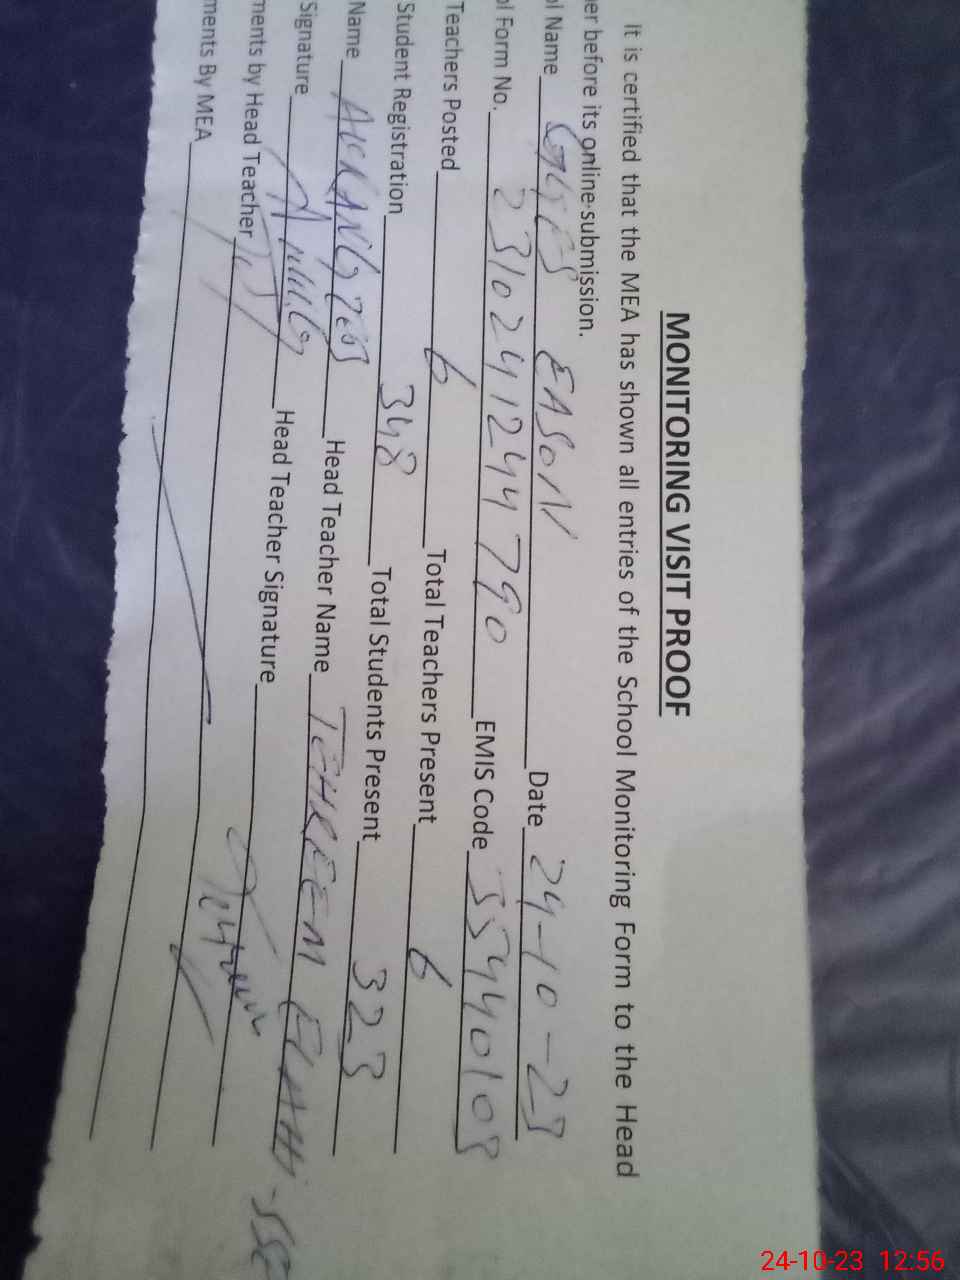 MONITORING VISIT PROOF
It is certified that the MEA has shown all entries of the School Monitoring Form to the Head
er before its online submission.
ol Name EASON Date 24-10-23
ol Form No. 231024124479 EMIS Code 3544010
Teachers Posted 6 Total Teachers Present 6
Student Registration 348 Total Students Present 323
Name Head Teacher Name TEHREEM ELAHI
Signature Head Teacher Signature
ments by Head Teacher
ments By MEA
24-10-23 12:56